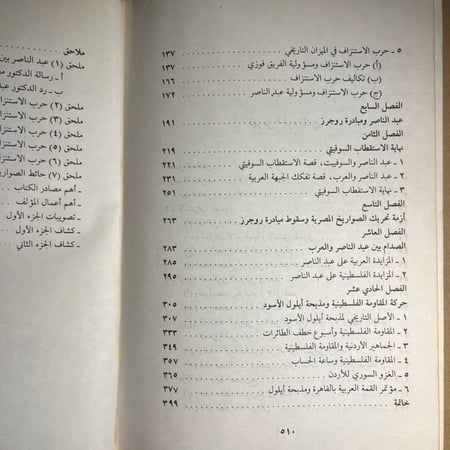 ٥ ـ حرب الاستنزاف في الميزان التاريخي ١٣٧
(أ) حرب الاستنزاف ومسؤولية الفريق فوزي ١٣٧
(ب) تكاليف حرب الاستنزاف ١٦٦
(ج) حرب الاستنزاف ومسؤولية عبد الناصر ١٧٢
الفصل السابع
عبد الناصر ومبادرة روجرز ١٩١
الفصل الثامن
نهاية الاستقطاب السوفيتي ٢١٩
١ ـ عبد الناصر والسوفييت، قصة الاستقطاب السوفيتي ٢٢١
٢ ـ عبد الناصر والعرب، قصة تفكك الجبهة العربية ٢٣١
٣ ـ نهاية الاستقطاب السوفيتي ٢٥١
الفصل التاسع
أزمة تحريك الصواريخ المصرية وسقوط مبادرة روجرز ٢٦٣
الفصل العاشر
الصدام بين عبد الناصر والعرب ٢٨٣
١ ـ المزايدة العربية على عبد الناصر ٢٨٥
٢ ـ المزايدة الفلسطينية على عبد الناصر ٢٩٥
الفصل الحادي عشر
حركة المقاومة الفلسطينية ومذبحة أيلول الأسود ٣٠٥
١ ـ الأصل التاريخي لمذبحة أيلول الأسود ٣٠٧
٢ ـ المقاومة الفلسطينية وأسبوع خطف الطائرات ٣٣٣
٣ ـ الجماهير الأردنية والمقاومة الفلسطينية ٣٤٩
٤ ـ المقاومة الفلسطينية وساعة الحساب ٣٥٧
٥ ـ الغزو السوري للأردن ٣٦٥
٦ ـ مؤتمر القمة العربية بالقاهرة ومذبحة أيلول ٣٧٧
خاتمة ٣٩٩
٥١٠
ملاحق
ملحق (١) عبد الناصر بين
أ ـ رسالة الدكتور
ب ـ رد الدكتور
ملحق (٢) حرب الاستنزاف
ملحق (٣) حرب
ملحق (٤) حرب
ملحق (٥) حرب
ملحق (٦) حرب
ملحق (٧) حائط
ـ أهم مصادر الكتاب
ـ أهم أعمال المؤلف
ـ تصويبات الجزء الأول
ـ كشاف الجزء الأول
ـ كشاف الجزء الثاني